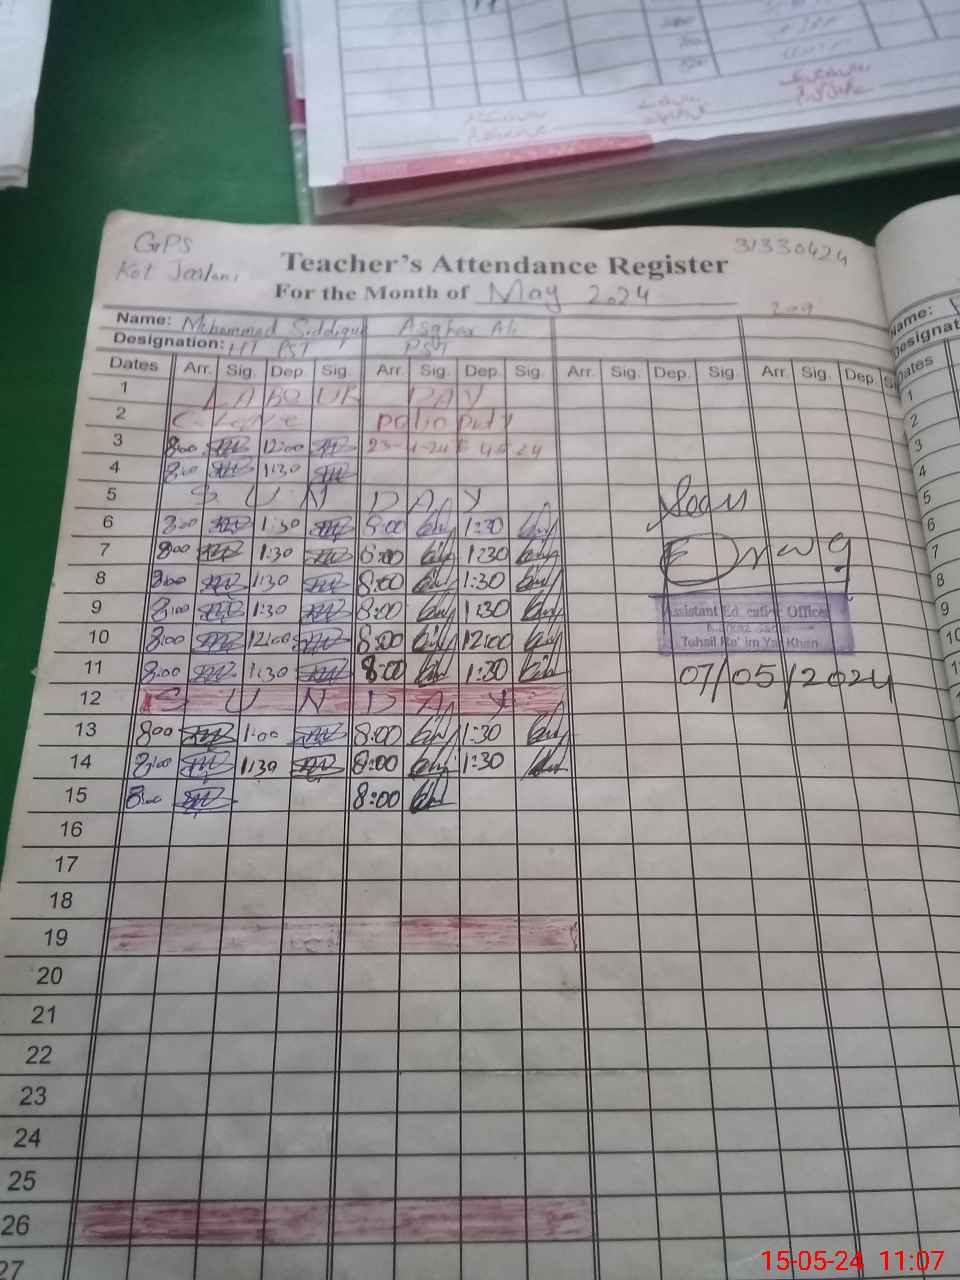 GPS
Kot
31330424
Teacher's Attendance Register
For the Month of May 2024
Name: Mohammad Siddique Asghar Ali
Designation: HT PST PST
Dates Arr. Sig. Dep. Sig. Arr. Sig. Dep. Sig. Arr. Sig. Dep. Sig. Arr. Sig. Dep.
1 LABOUR DAY
2 Polio Duty
3 8:00 12:00
4 8:00 1:30
5 SUNDAY
6 8:00 1:30 8:00 1:30
7 8:00 1:30 8:00 1:30
8 8:00 1:30 8:00 1:30
9 8:00 1:30 8:00 1:30
10 8:00 12:00 8:00 12:00
11 8:00 1:30 8:00 1:30
12 SUNDAY
13 8:00 1:00 8:00 1:30
14 8:00 1:30 8:00 1:30
15 8:00 8:00
16
17
18
19
20
21
22
23
24
25
26
27
Seen
Assistant Education Officer
Tehsil Rahim Yar Khan
07/05/2024
Name:
Designat
Dates
1
2
3
4
5
6
7
8
9
10
15-05-24 11:07